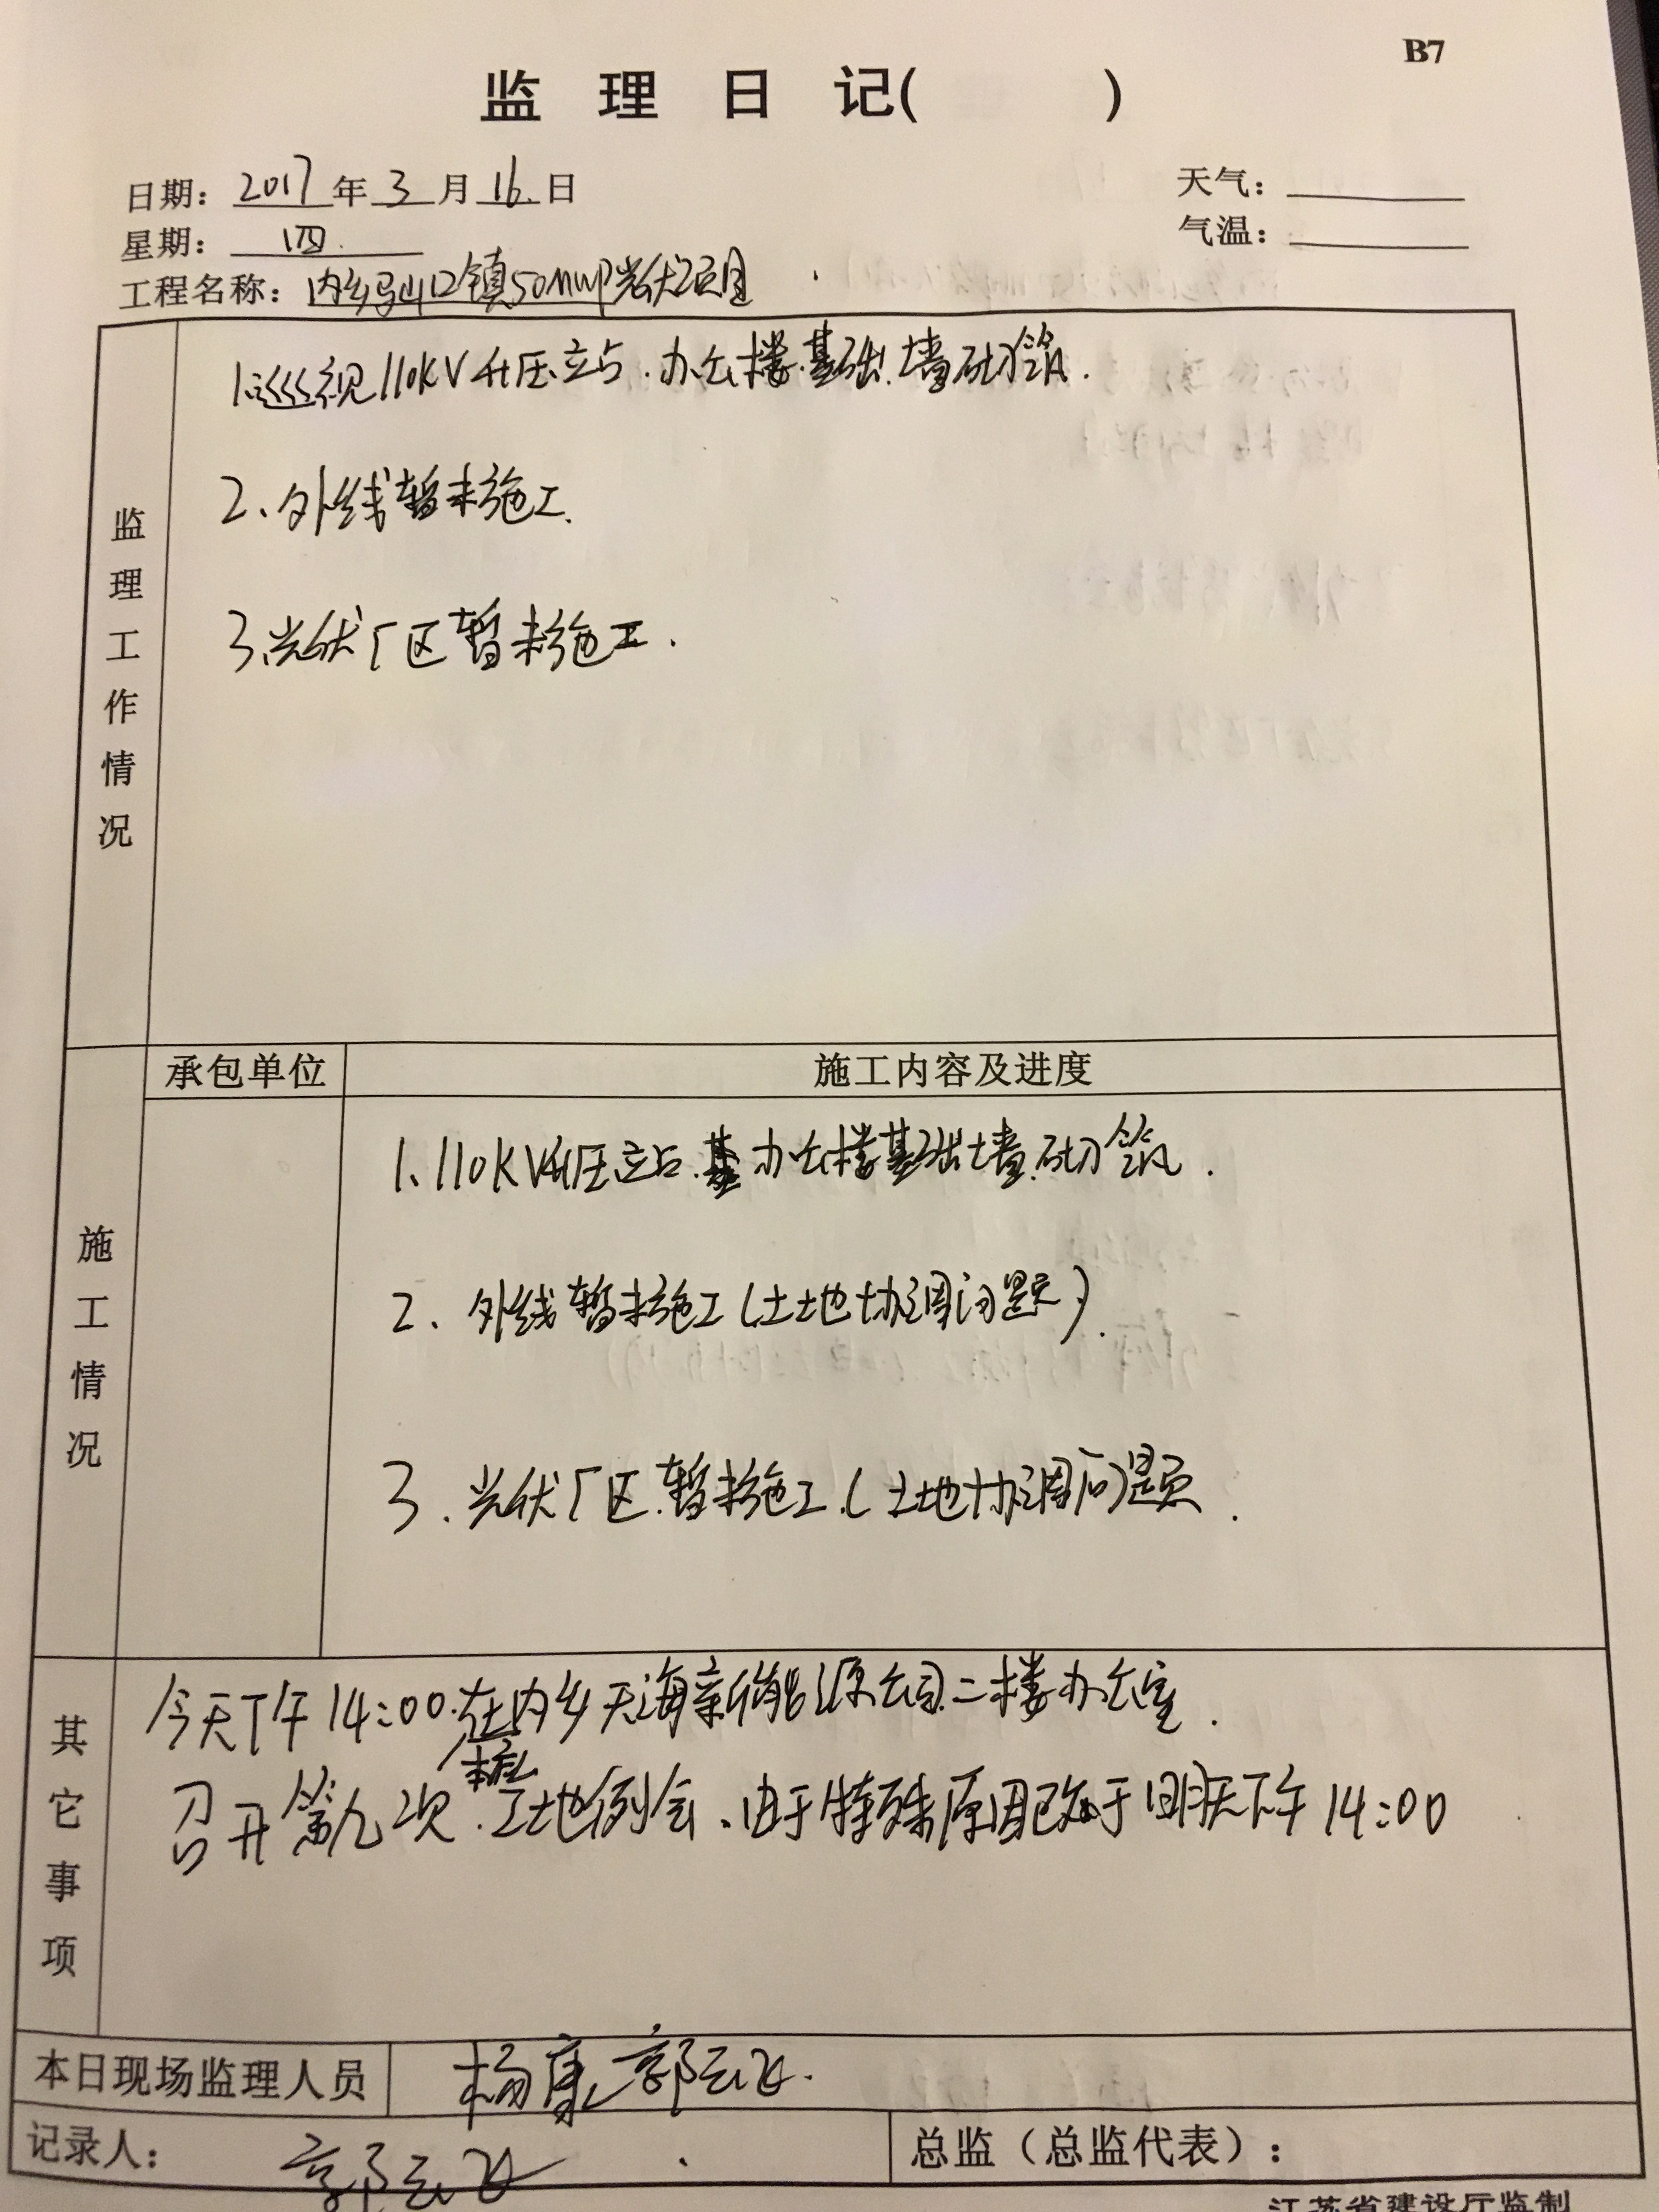 B7
监 理 日 记( )
日期: 2017 年 3 月 16 日
天气:
星期: 四.
气温:
工程名称: 内乡马山口镇50MWP光伏项目
监理工作情况
1.巡视110KV升压站.办公楼.基础.墙砌筑.
2、外线暂未施工.
3.光伏厂区暂未施工.
承包单位 施工内容及进度
施工情况
1、110KV升压站.办公楼基础墙.砌筑.
2、外线暂未施工(土地协调问题).
3.光伏厂区.暂未施工.(土地协调问题.
其它事项
今天下午14:00.在内乡天海新能源公司.二楼办公室.
召开第九次.工地例会、由于特殊原因改于明天下午14:00
本日现场监理人员 杨康 郭云飞.
记录人: 郭云飞
总监(总监代表):
江苏省建设厅监制